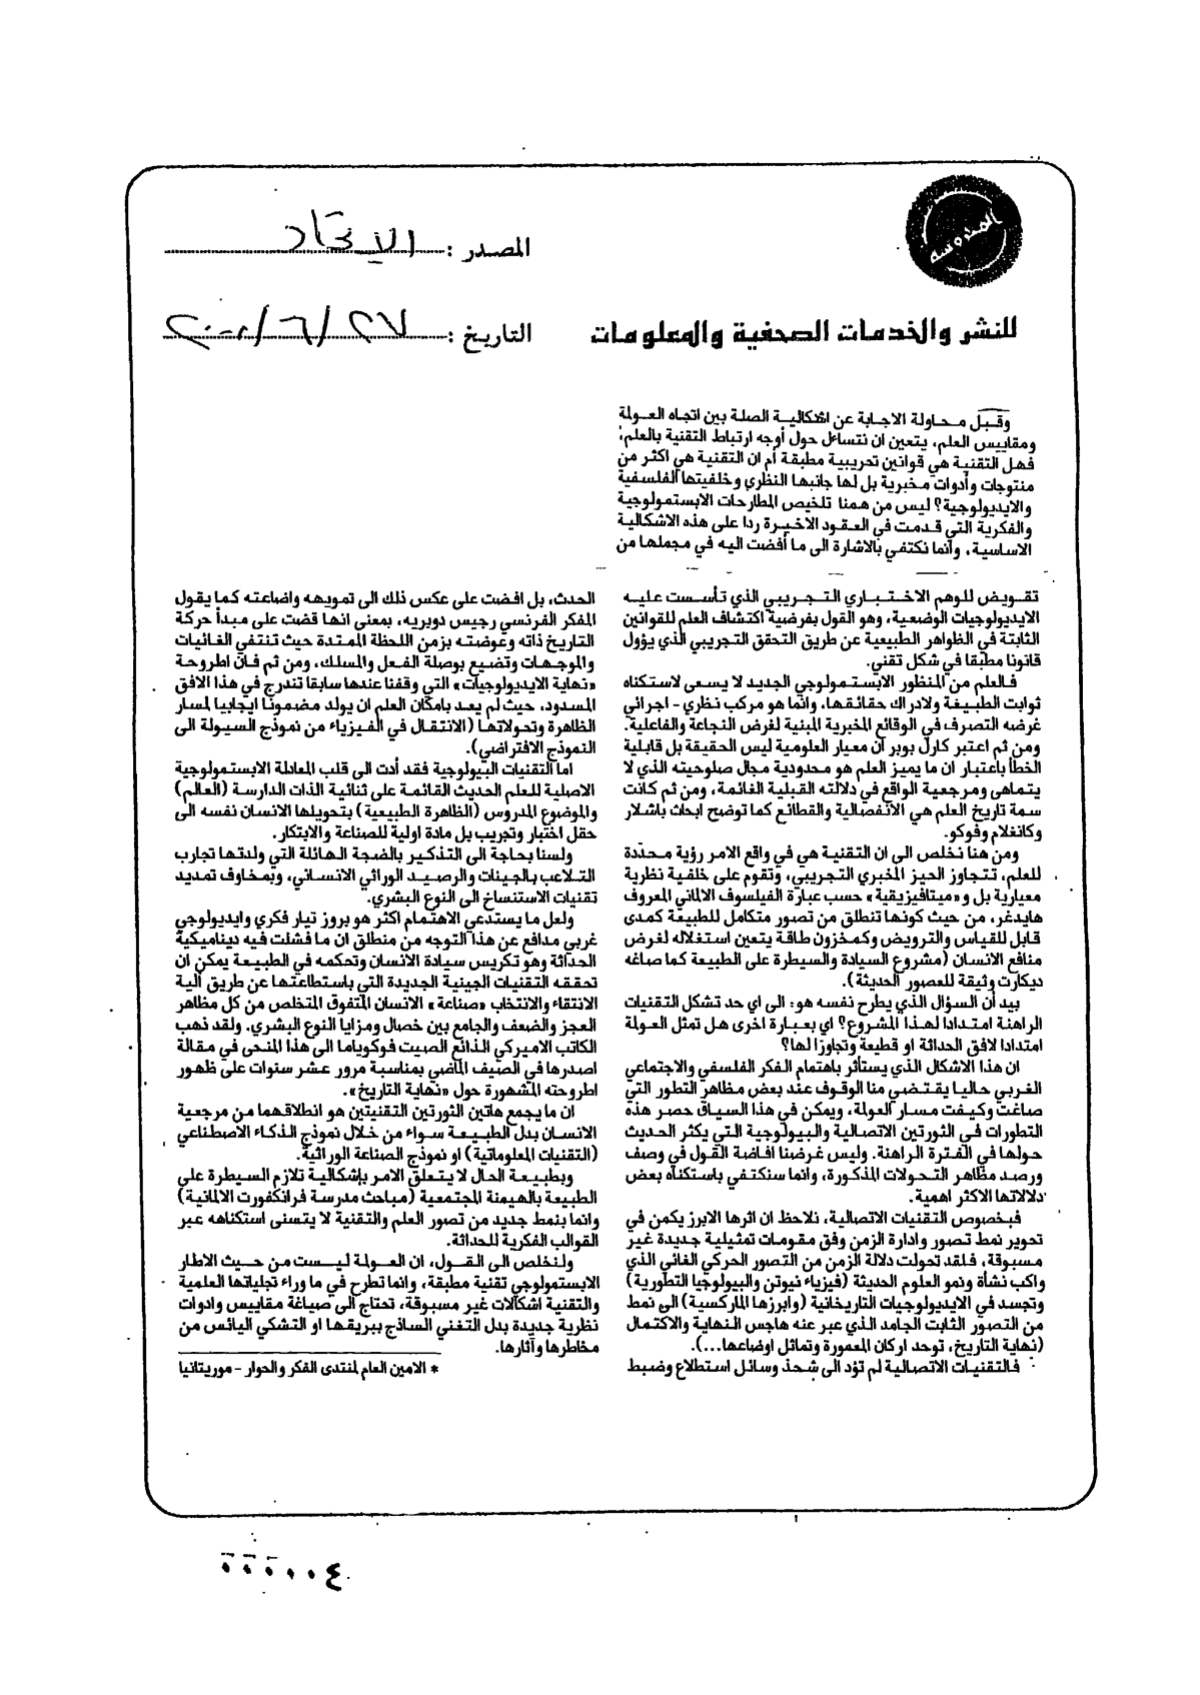 المصدر : الاتحاد
للنشر والخدمات الصحفية والمعلومات
التاريخ : ٢٧/٦/٢٠٠١
وقبل محاولة الاجابة عن اشكالية الصلة بين اتجاه العولة
ومقاييس العلم، يتعين ان نتساءل حول أوجه ارتباط التقنية بالعلم:
فهل التقنية هي قوانين تجريبية مطبقة أم ان التقنية هي اكثر من
منتوجات وأدوات مخبرية بل لها جانبها النظري وخلفيتها الفلسفية
والايديولوجية؟ ليس من همنا تلخيص المطارحات الابستمولوجية
والفكرية التي قدمت في العقود الاخيرة ردا على هذه الاشكالية
الاساسية، وانما نكتفي بالاشارة الى ما أفضت اليه في مجملها من
تقويض للوهم الاختباري التجريبي الذي تأسست عليه
الايديولوجيات الوضعية، وهو القول بفرضية اكتشاف العلم للقوانين
الثابتة في الظواهر الطبيعية عن طريق التحقق التجريبي الذي يؤول
قانونا مطبقا في شكل تقني.
فالعلم من المنظور الابستمولوجي الجديد لا يسعى لاستكناه
ثوابت الطبيعة ولادراك حقائقها، وانما هو مركب نظري - اجرائي
غرضه التصرف في الوقائع المخبرية المبنية لغرض النجاعة والفاعلية.
ومن ثم اعتبر كارل بوبر أن معيار العلومية ليس الحقيقة بل قابلية
الخطأ باعتبار ان ما يميز العلم هو محدودية مجال صلوحيته الذي لا
يتماهى ومرجعية الواقع في دلالته القبلية الغائمة، ومن ثم كانت
سمة تاريخ العلم هي الانفصالية والقطائع كما توضح ابحاث باشلار
وكانغلام وفوكو.
ومن هنا نخلص الى ان التقنية هي في واقع الامر رؤية محددة
للعلم، تتجاوز الحيز المخبري التجريبي، وتقوم على خلفية نظرية
معيارية بل و«ميتافيزيقية» حسب عبارة الفيلسوف الالماني المعروف
هايدغر، من حيث كونها تنطلق من تصور متكامل للطبيعة كمدى
قابل للقياس والترويض وكمخزون طاقة يتعين استغلاله لغرض
منافع الانسان (مشروع السيادة والسيطرة على الطبيعة كما صاغه
ديكارت وثيقة للعصور الحديثة).
بيد أن السؤال الذي يطرح نفسه هو: الى اي حد تشكل التقنيات
الراهنة امتدادا لهذا المشروع؟ اي بعبارة اخرى هل تمثل العولة
امتدادا لافق الحداثة او قطيعة وتجاوزا لها؟
ان هذا الاشكال الذي يستأثر باهتمام الفكر الفلسفي والاجتماعي
الغربي حاليا يقتضي منا الوقوف عند بعض مظاهر التطور التي
صاغت وكيفت مسار العولة، ويمكن في هذا السياق حصر هذه
التطورات في الثورتين الاتصالية والبيولوجية التي يكثر الحديث
حولها في الفترة الراهنة. وليس غرضنا افاضة القول في وصف
ورصد مظاهر التحولات المذكورة، وانما سنكتفي باستكناه بعض
دلالاتها الاكثر اهمية.
فبخصوص التقنيات الاتصالية، نلاحظ ان اثرها الابرز يكمن في
تحوير نمط تصور وادارة الزمن وفق مقومات تمثيلية جديدة غير
مسبوقة، فلقد تحولت دلالة الزمن من التصور الحركي الغائي الذي
واكب نشأة ونمو العلوم الحديثة (فيزياء نيوتن والبيولوجيا التطورية)
وتجسد في الايديولوجيات التاريخانية (وابرزها الماركسية) الى نمط
من التصور الثابت الجامد الذي عبر عنه هاجس النهاية والاكتمال
(نهاية التاريخ، توحد اركان المعمورة وتماثل اوضاعها...).
فالتقنيات الاتصالية لم تؤد الى شحذ وسائل استطلاع وضبط
الحدث، بل افضت على عكس ذلك الى تمويهه واضاعته كما يقول
المفكر الفرنسي رجيس دوبريه، بمعنى انها قضت على مبدأ حركة
التاريخ ذاته وعوضته بزمن اللحظة الممتدة حيث تنتفي الغائيات
والموجهات وتضيع بوصلة الفعل والمسلك، ومن ثم فان اطروحة
«نهاية الايديولوجيات» التي وقفنا عندها سابقا تندرج في هذا الافق
المسدود، حيث لم يعد بامكان العلم ان يولد مضمونا ايجابيا لمسار
الظاهرة وتحولاتها (الانتقال في الفيزياء من نموذج السيولة الى
النموذج الافتراضي).
اما التقنيات البيولوجية فقد أدت الى قلب المعادلة الابستمولوجية
الاصلية للعلم الحديث القائمة على ثنائية الذات الدارسة (العالم)
والموضوع المدروس (الظاهرة الطبيعية) بتحويلها الانسان نفسه الى
حقل اختبار وتجريب بل مادة اولية للصناعة والابتكار.
ولسنا بحاجة الى التذكير بالضجة الهائلة التي ولدتها تجارب
التلاعب بالجينات والرصيد الوراثي الانساني، وبمخاوف تمديد
تقنيات الاستنساخ الى النوع البشري.
ولعل ما يستدعي الاهتمام اكثر هو بروز تيار فكري وايديولوجي
غربي مدافع عن هذا التوجه من منطلق ان ما فشلت فيه ديناميكية
الحداثة وهو تكريس سيادة الانسان وتحكمه في الطبيعة يمكن ان
تحققه التقنيات الجينية الجديدة التي باستطاعتها عن طريق آلية
الانتقاء والانتخاب «صناعة» الانسان المتفوق المتخلص من كل مظاهر
العجز والضعف والجامع بين خصال ومزايا النوع البشري. ولقد ذهب
الكاتب الاميركي الذائع الصيت فوكوياما الى هذا المنحى في مقالة
اصدرها في الصيف الماضي بمناسبة مرور عشر سنوات على ظهور
اطروحته المشهورة حول «نهاية التاريخ».
ان ما يجمع هاتين الثورتين التقنيتين هو انطلاقهما من مرجعية
الانسان بدل الطبيعة سواء من خلال نموذج الذكاء الاصطناعي
(التقنيات المعلوماتية) او نموذج الصناعة الوراثية.
وبطبيعة الحال لا يتعلق الامر بإشكالية تلازم السيطرة على
الطبيعة بالهيمنة المجتمعية (مباحث مدرسة فرانكفورت الالمانية)
وانما بنمط جديد من تصور العلم والتقنية لا يتسنى استكناهه عبر
القوالب الفكرية للحداثة.
ولنخلص الى القول، ان العولة ليست من حيث الاطار
الابستمولوجي تقنية مطبقة، وانما تطرح في ما وراء تجلياتها العلمية
والتقنية اشكالات غير مسبوقة، تحتاج الى صياغة مقاييس وادوات
نظرية جديدة بدل التغني الساذج ببريقها او التشكي اليائس من
مخاطرها وآثارها.
* الامين العام لمنتدى الفكر والحوار - موريتانيا